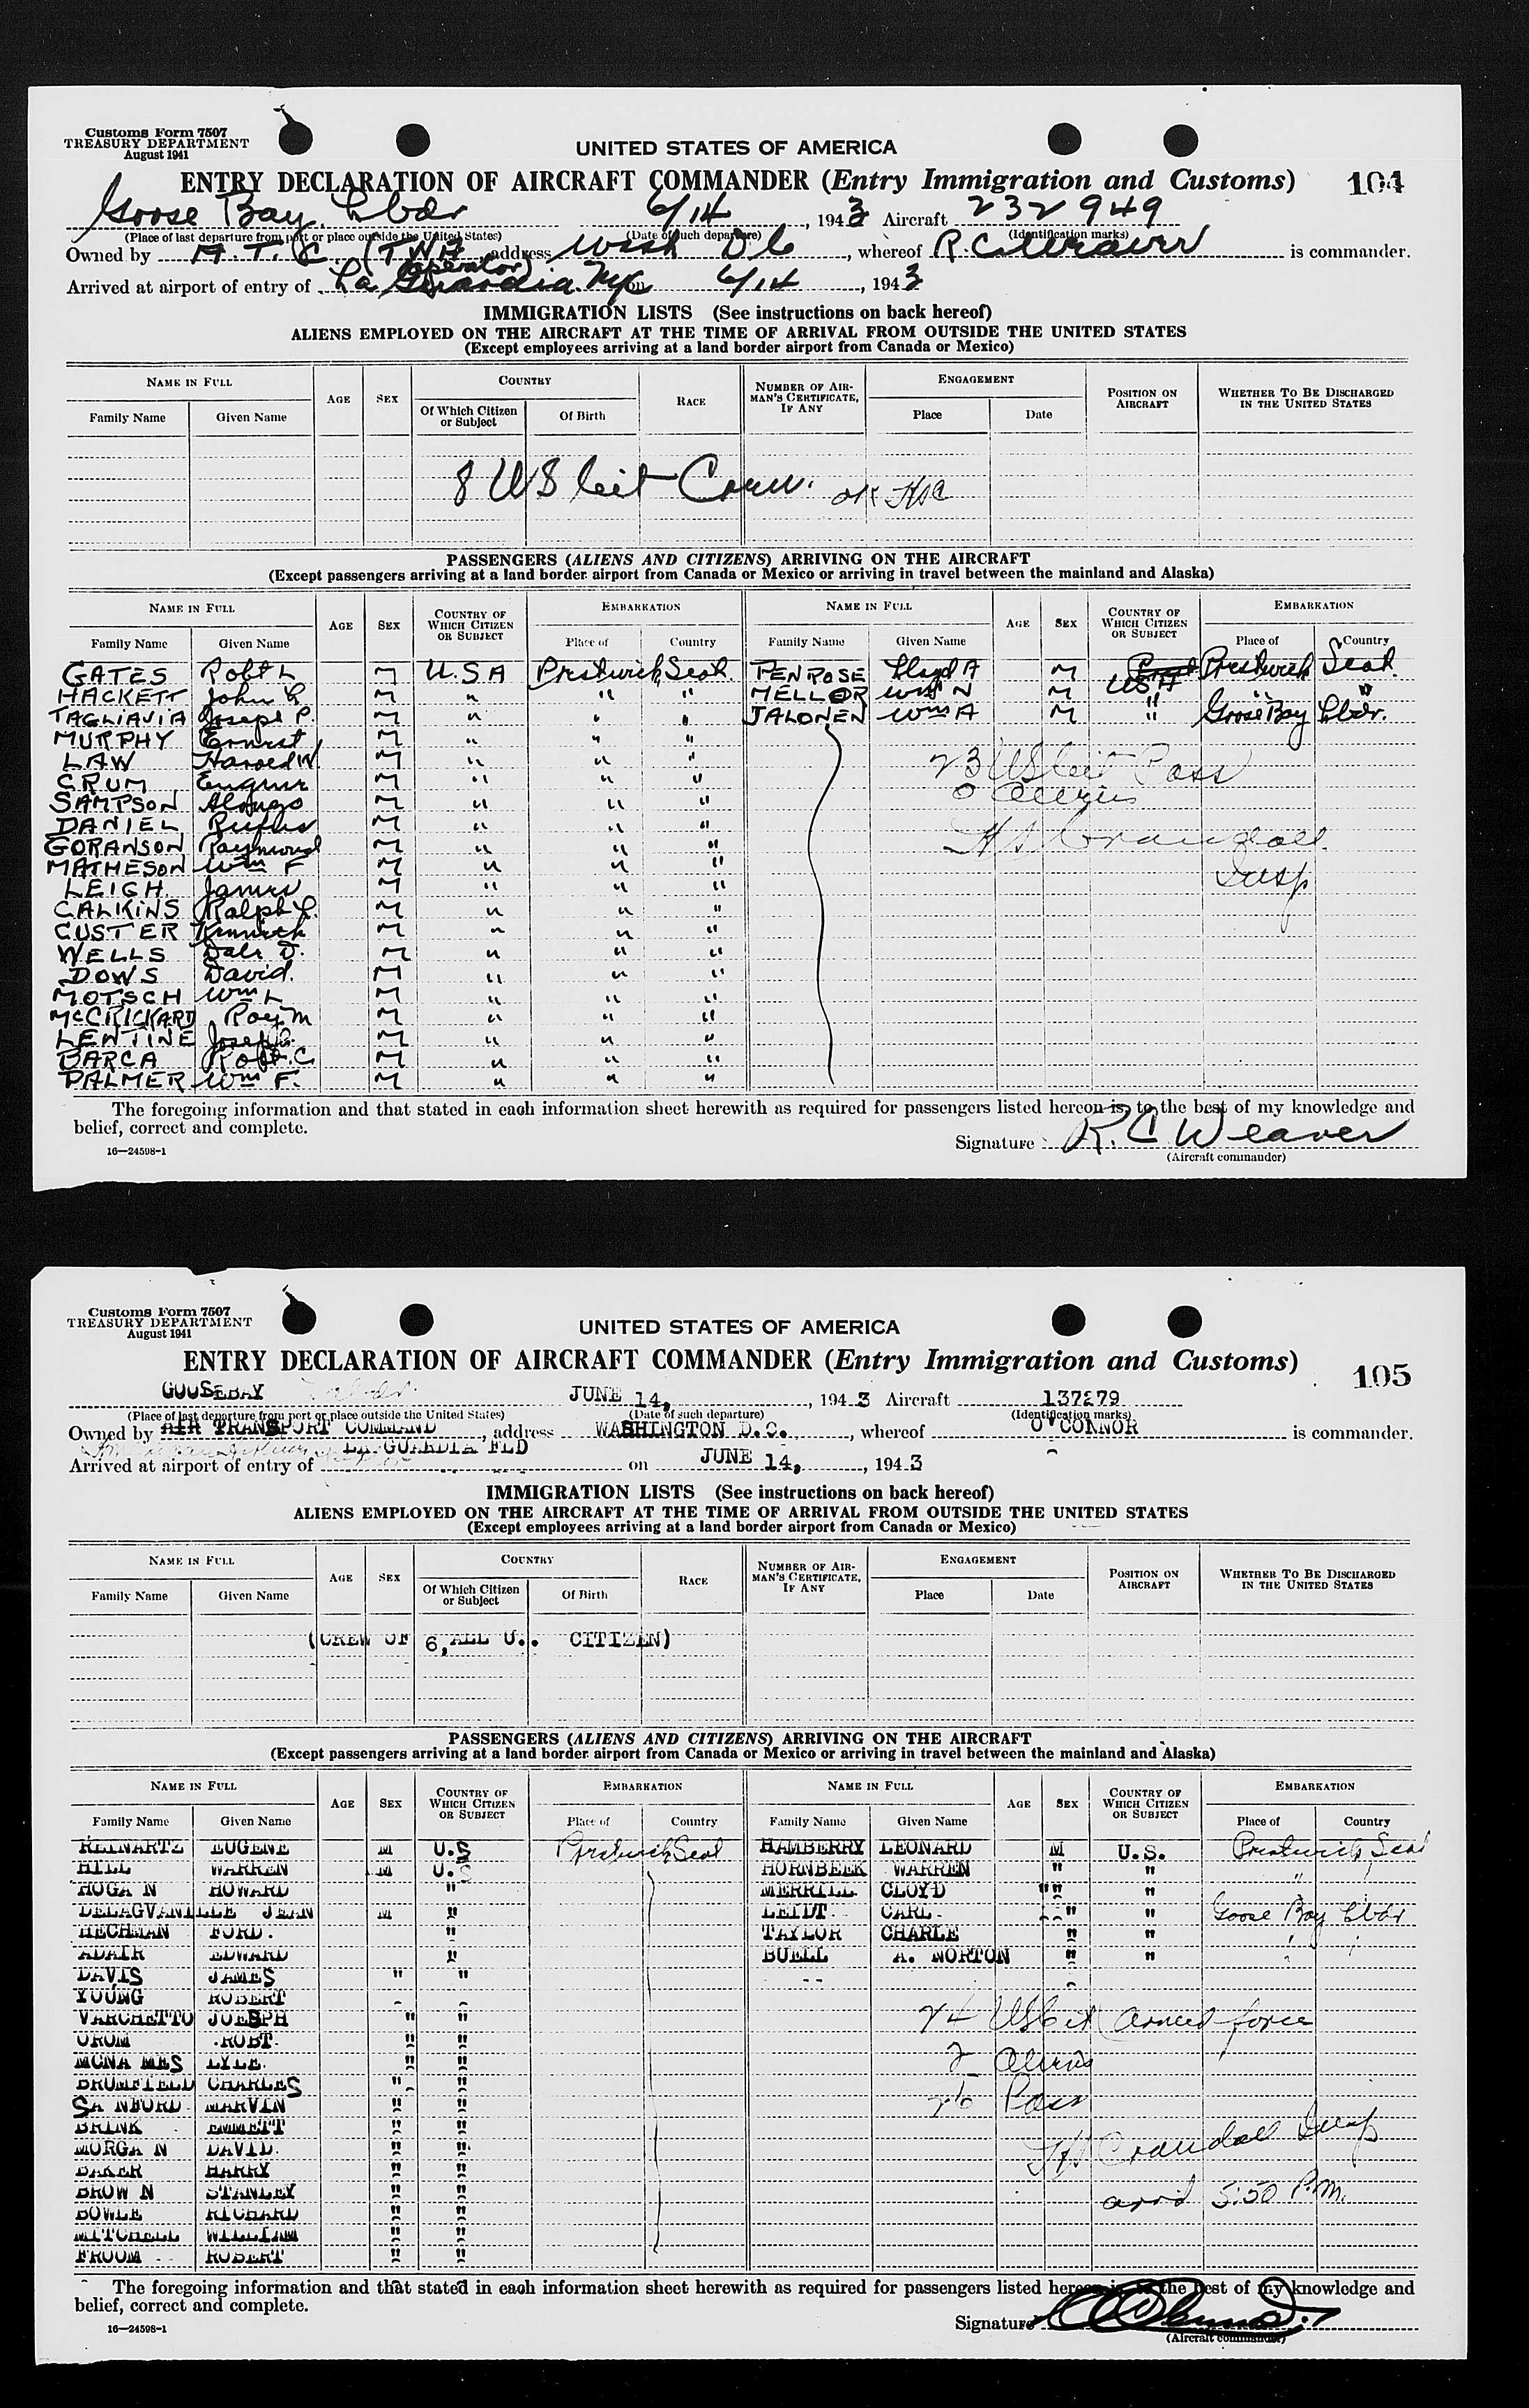 Customs Form 7507
TREASURY DEPARTMENT
August 1941
UNITED STATES OF AMERICA
ENTRY DECLARATION OF AIRCRAFT COMMANDER (Entry Immigration and Customs) 104
Goose Bay, Lbdr 6/14, 1943 Aircraft 232949
(Place of last departure from port or place outside the United States) (Date of such departure) (Identification marks)
Owned by A.T.C. (TWA, address Wash DC, whereof R.C. Weaver is commander.
operator)
Arrived at airport of entry of La Guardia. NYC on 6/14, 1943
IMMIGRATION LISTS (See instructions on back hereof)
ALIENS EMPLOYED ON THE AIRCRAFT AT THE TIME OF ARRIVAL FROM OUTSIDE THE UNITED STATES
(Except employees arriving at a land border airport from Canada or Mexico)
NAME IN FULL AGE SEX COUNTRY RACE NUMBER OF AIRMAN'S CERTIFICATE, IF ANY ENGAGEMENT POSITION ON AIRCRAFT WHETHER TO BE DISCHARGED IN THE UNITED STATES
Family Name Given Name Of Which Citizen or Subject Of Birth Place Date
8 US Cit Crew. OK HSC
PASSENGERS (ALIENS AND CITIZENS) ARRIVING ON THE AIRCRAFT
(Except passengers arriving at a land border airport from Canada or Mexico or arriving in travel between the mainland and Alaska)
NAME IN FULL AGE SEX COUNTRY OF WHICH CITIZEN OR SUBJECT EMBARKATION NAME IN FULL AGE SEX COUNTRY OF WHICH CITIZEN OR SUBJECT EMBARKATION
Family Name Given Name Place of Country Family Name Given Name Place of Country
GATES Robt L M U.S.A Prestwick Scot. PENROSE Lloyd A M USA Prestwick Scot.
HACKETT John M " " " MELLOR Wm N M " " "
TAGLIAVIA Joseph P. M " " " JALONEN Wm A M " Goose Bay Lbdr.
MURPHY Ernest M " " "
LAW Harold W. M " " " 23 US Cit Pass
CRUM Eugene M " " " 0 Aliens
SAMPSON Alonzo M " " "
DANIEL Rufus M " " " HS Crandall
GORANSON Raymond M " " "
MATHESON Wm F M " " " Insp
LEIGH James M " " "
CALKINS Ralph L. M " " "
CUSTER Kenneth M " " "
WELLS Dale D. M " " "
DOWS David. M " " "
MOTSCH Wm L M " " "
McCRICKARD Roy M M " " "
LENTINE Joseph M " " "
BARCA Robt. C M " " "
PALMER Wm F. M " " "
The foregoing information and that stated in each information sheet herewith as required for passengers listed hereon is, to the best of my knowledge and
belief, correct and complete.
Signature R. C Weaver
16—24598-1 (Aircraft commander)
Customs Form 7507
TREASURY DEPARTMENT
August 1941
UNITED STATES OF AMERICA
ENTRY DECLARATION OF AIRCRAFT COMMANDER (Entry Immigration and Customs) 105
GOOSEBAY Labdr. JUNE 14, , 1943 Aircraft 137279
(Place of last departure from port or place outside the United States) (Date of such departure) (Identification marks)
Owned by AIR TRANSPORT COMMAND, address WASHINGTON D.C., whereof O'CONNOR is commander.
Arrived at airport of entry of LA GUARDIA FLD on JUNE 14, , 1943
IMMIGRATION LISTS (See instructions on back hereof)
ALIENS EMPLOYED ON THE AIRCRAFT AT THE TIME OF ARRIVAL FROM OUTSIDE THE UNITED STATES
(Except employees arriving at a land border airport from Canada or Mexico)
NAME IN FULL AGE SEX COUNTRY RACE NUMBER OF AIRMAN'S CERTIFICATE, IF ANY ENGAGEMENT POSITION ON AIRCRAFT WHETHER TO BE DISCHARGED IN THE UNITED STATES
Family Name Given Name Of Which Citizen or Subject Of Birth Place Date
(CREW OF 6, ALL U.. CITIZEN)
PASSENGERS (ALIENS AND CITIZENS) ARRIVING ON THE AIRCRAFT
(Except passengers arriving at a land border airport from Canada or Mexico or arriving in travel between the mainland and Alaska)
NAME IN FULL AGE SEX COUNTRY OF WHICH CITIZEN OR SUBJECT EMBARKATION NAME IN FULL AGE SEX COUNTRY OF WHICH CITIZEN OR SUBJECT EMBARKATION
Family Name Given Name Place of Country Family Name Given Name Place of Country
REINARTZ EUGENE M U.S Prestwick Scot HAMBERRY LEONARD M U.S. Prestwick Scot
HILL WARREN M U.S HORNBEEK WARREN " " " "
HOGA N HOWARD " MERRILL CLOYD "" "
DELAGVANILLE JEAN M " LEIDT CARL " " Goose Bay Lbdr
HECHMAN FORD. " TAYLOR CHARLE " " " "
ADAIR EDWARD " BUELL A. NORTON " " " "
DAVIS JAMES " "
YOUNG ROBERT
VARCHETTO JOESPH " " 24 US Cit Armed force
ORUM ROBT " "
MCNA MES LYLE " " 2 Aliens
BRUMFIELD CHARLES " "
SA NFORD MARVIN " " 26 Pass
BRINK EMMETT " "
MORGA N DAVID. " " HS Crandall Insp
BAKER HARRY " "
BROW N STANLEY " " arrd 5:50 P.M.
BOWLE RICHARD " "
MITCHELL WILLIAM " "
FROOM ROBERT " "
The foregoing information and that stated in each information sheet herewith as required for passengers listed hereon is, to the best of my knowledge and
belief, correct and complete.
Signature
16—24598-1 (Aircraft commander)